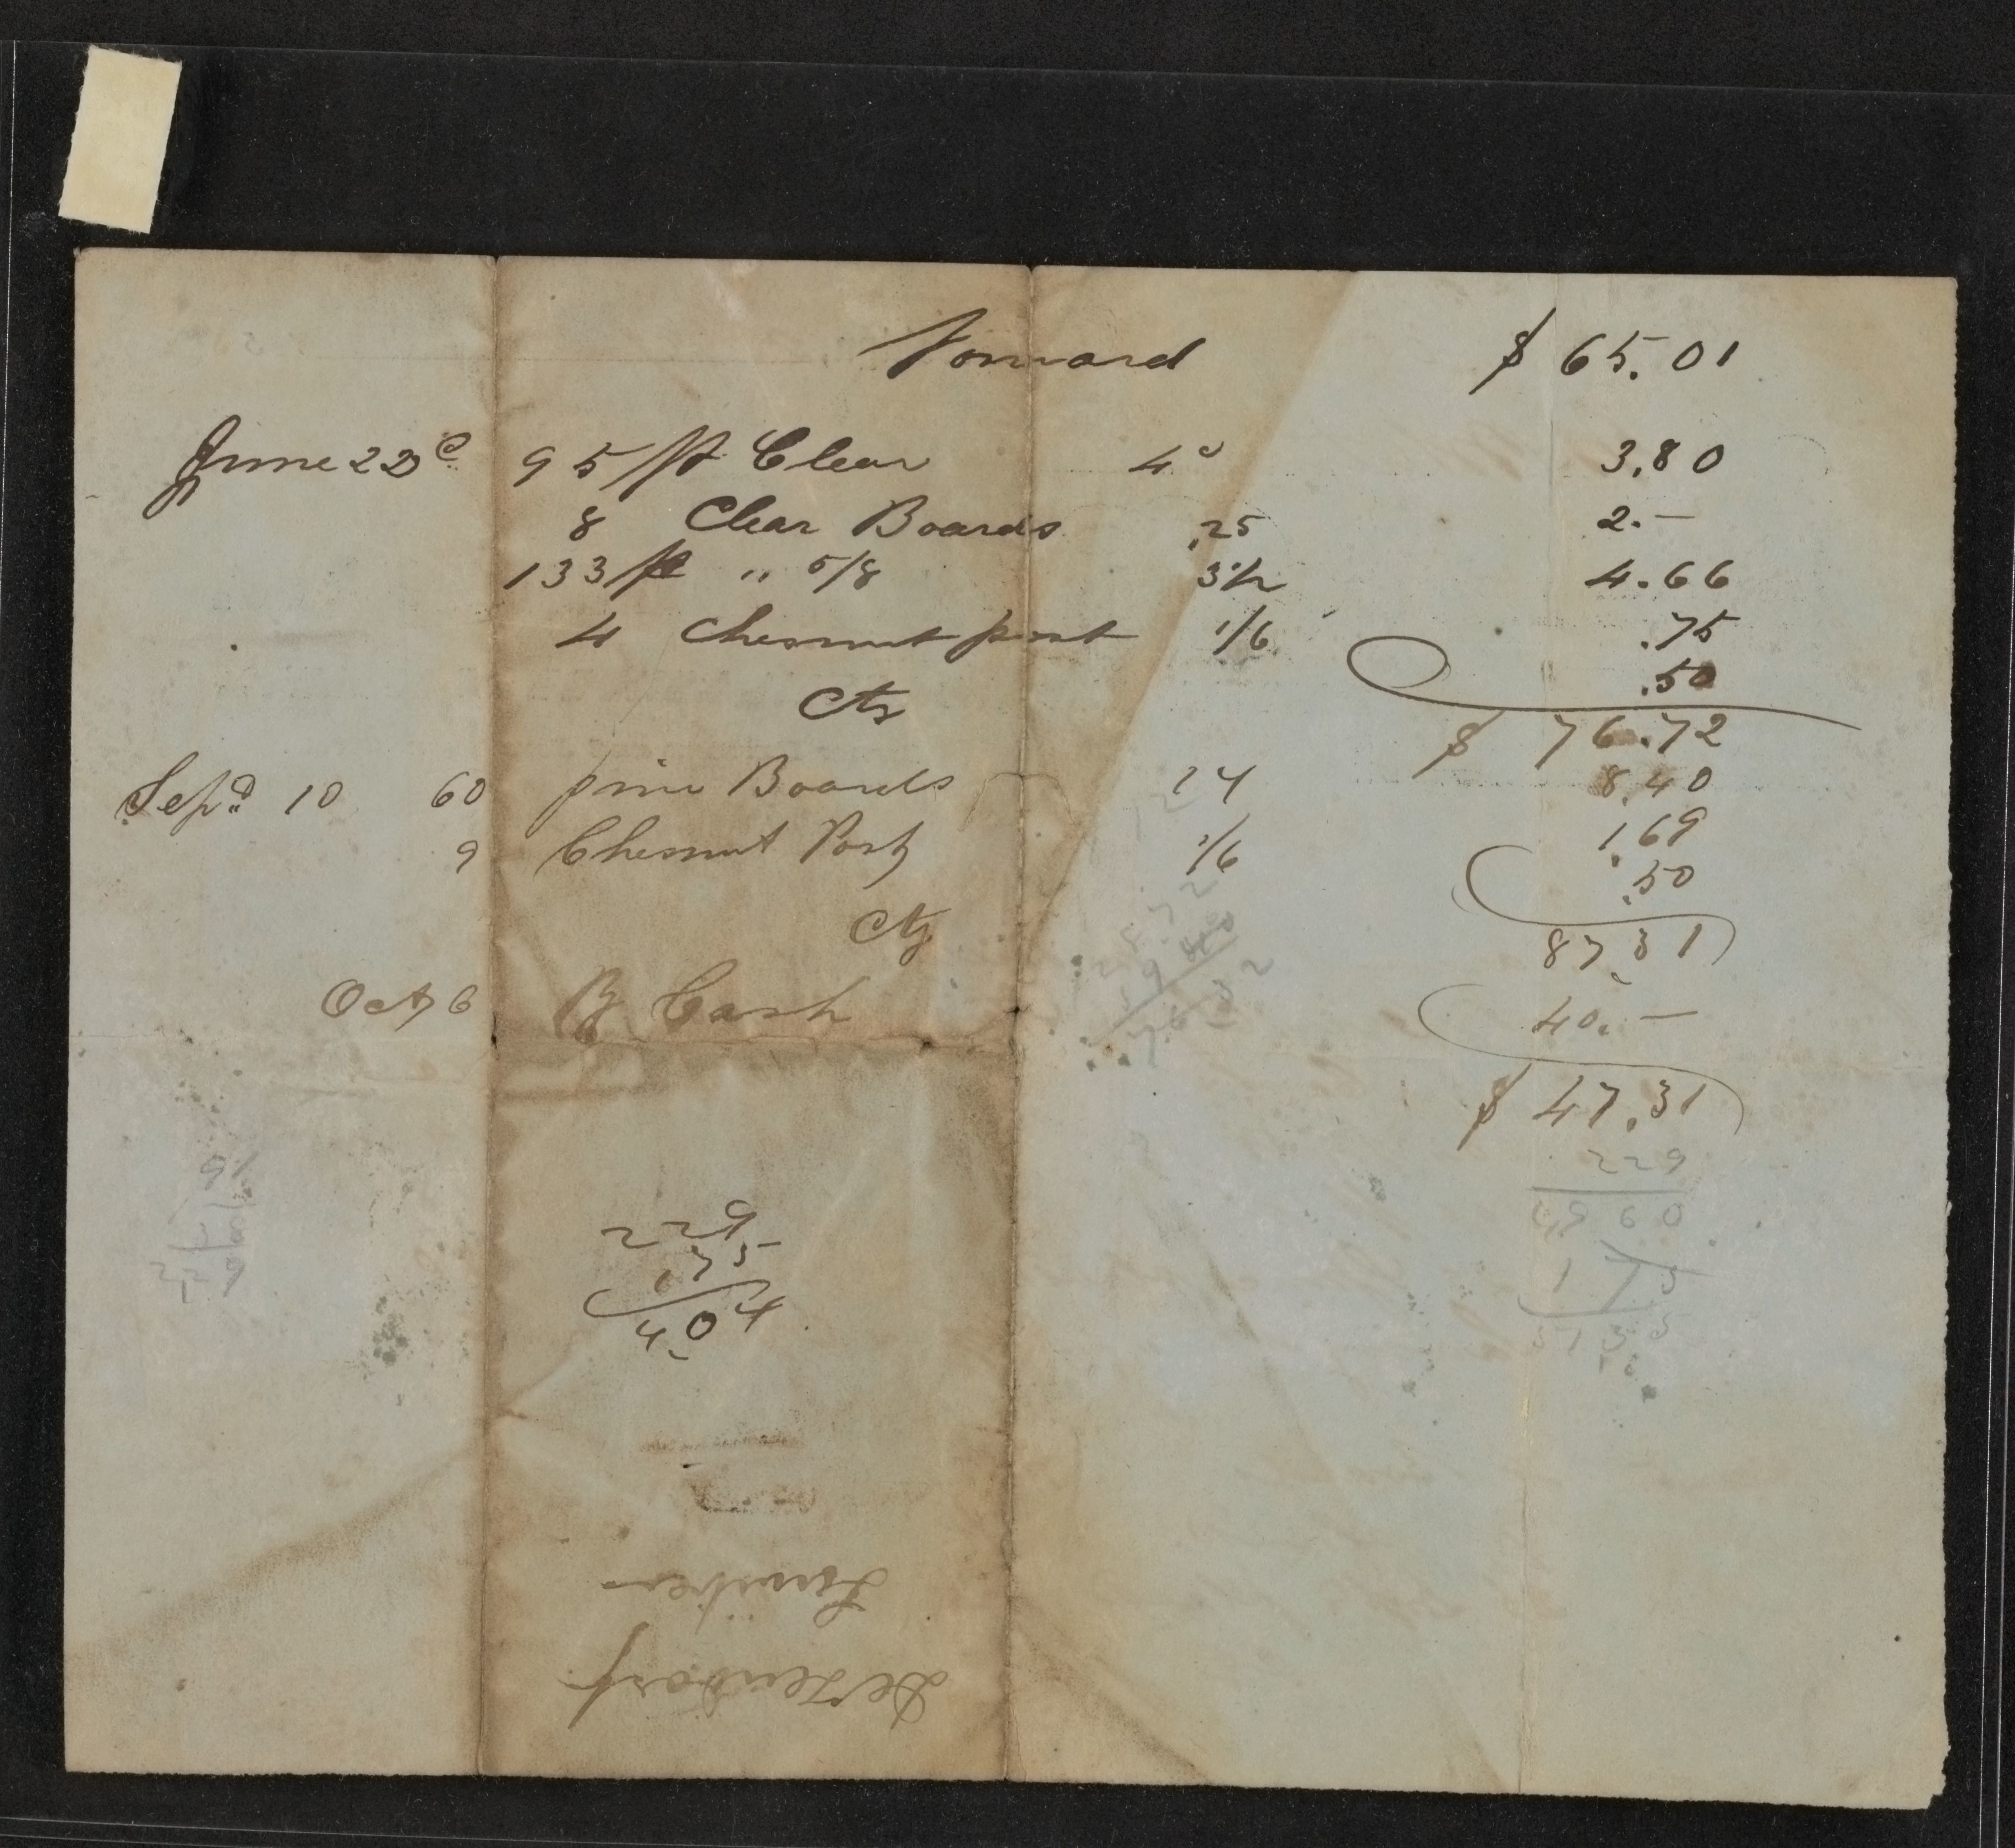 Forward $ 65.01
June 22d 95 ft Clear 4c 3.80
8 Clear Boards .25 2.—
133 ft " 5/8 3 1/2 4.66
4 Chesnut post 1/6 .75
Ctg .50
$ 76.72
Sepd 10 60 pine Boards 14 8.40
9 Chesnut Posts 1/6 1.69
Ctg .50
87.31
Oct 6 By Cash 40.—
$ 47.31
229
4960
175
229
1.75
4.04
Lumber